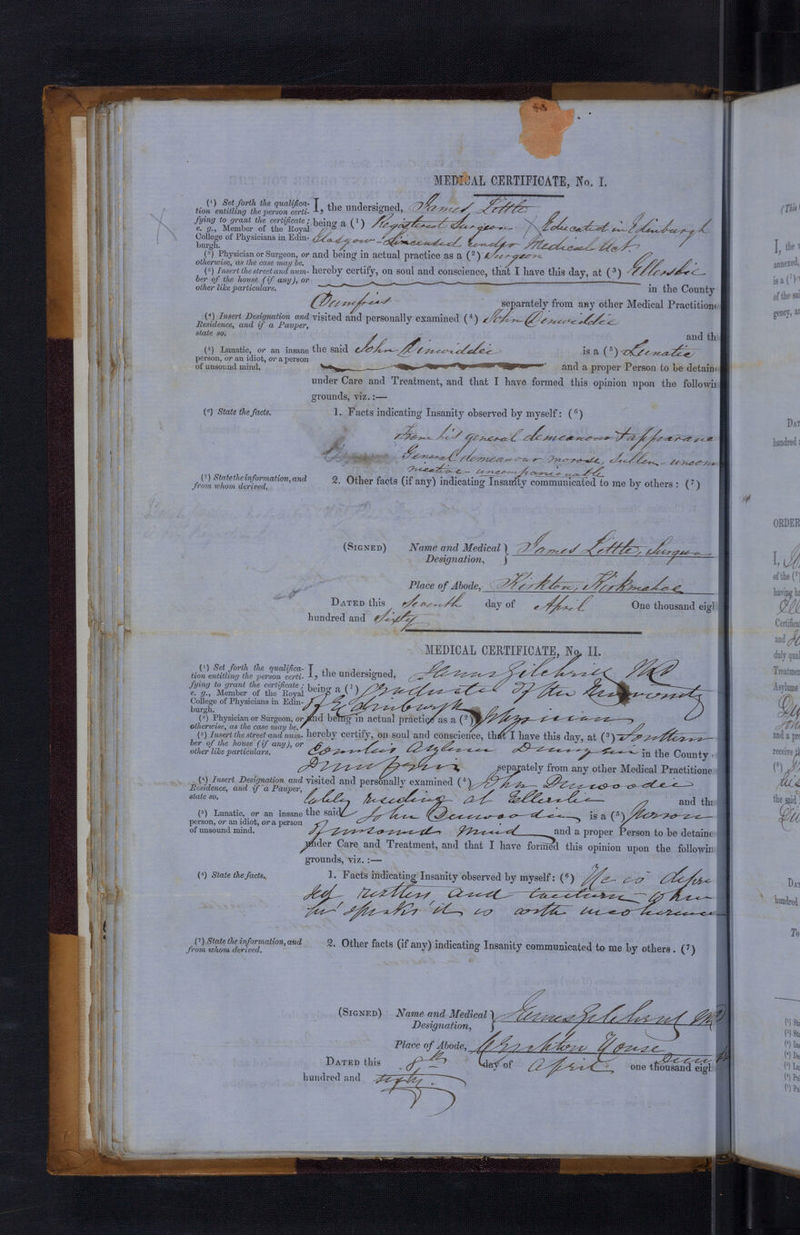 48
MEDICAL CERTIFICATE, No. I.
(¹) Set forth the qualifica-
tion entitling the person certi-
fying to grant the certificate;
e. g., Member of the Royal
College of Physicians in Edin-
burgh.
I, the undersigned, James Little
being a (¹) Registered Surgeon Educated in Edinburgh
Glasgow - Licensed under Medical Act
(²) Physician or Surgeon, or
otherwise, as the case may be.
and being in actual practice as a (²) Surgeon
(³) Insert the street and num-
ber of the house (if any), or
other like particulars.
hereby certify, on soul and conscience, that I have this day, at (³) Ellersbie
in the County
Dumfries separately from any other Medical Practitione
(⁴) Insert Designation and
Residence, and if a Pauper,
state so.
visited and personally examined (⁴) John Dinwiddie
and th
(⁵) Lunatic, or an insane
person, or an idiot, or a person
of unsound mind.
the said John Dinwiddie is a (⁵) Lunatic
and a proper Person to be detaine
under Care and Treatment, and that I have formed this opinion upon the followin
grounds, viz.:—
(⁶) State the facts.
1. Facts indicating Insanity observed by myself: (⁶)
From his general demeanour & appearance
General demeanour morose, sullen, uncom
municative - uncompanionable
(⁷) State the information, and
from whom derived.
2. Other facts (if any) indicating Insanity communicated to me by others: (⁷)
(SIGNED) Name and Medical Designation, James Little, Surgeon
Place of Abode, Kirkton, Kirkmahoe
DATED this Seventh day of April One thousand eigh
hundred and Sixty
MEDICAL CERTIFICATE, No. II.
(¹) Set forth the qualifica-
tion entitling the person certi-
fying to grant the certificate;
e. g., Member of the Royal
College of Physicians in Edin-
burgh.
I, the undersigned, James Gilchrist MD
being a (¹) Graduate of the University
of Edinburgh
(²) Physician or Surgeon, or
otherwise, as the case may be.
and being in actual practice as a (²) Physician
(³) Insert the street and num-
ber of the house (if any), or
other like particulars.
hereby certify, on soul and conscience, that I have this day, at (³) Southern
Counties Asylum in the County
Dumfries separately from any other Medical Practitione
(⁴) Insert Designation and
Residence, and if a Pauper,
state so.
visited and personally examined (⁴) John Dinwoodie
lately residing at Ellerslie and the
(⁵) Lunatic, or an insane
person, or an idiot, or a person
of unsound mind.
the said John Dinwoodie is a (⁵) Person
of unsound mind and a proper Person to be detaine
under Care and Treatment, and that I have formed this opinion upon the followin
grounds, viz.:—
(⁶) State the facts.
1. Facts indicating Insanity observed by myself: (⁶) He is depres
sed restless and taciturn when
he speaks it is with incoherence
(⁷) State the information, and
from whom derived.
2. Other facts (if any) indicating Insanity communicated to me by others. (⁷)
(SIGNED) Name and Medical Designation, James Gilchrist MD
Place of Abode, Crichton House
DATED this 8th day of April one thousand eigh
hundred and sixty.
(This
I, the
annexed,
is a (¹)
of the sai
gency, an
DAT
hundred
ORDER
I,
of the (
having
Certifica
and
duly qual
Treatmen
Asylums
and a pr
receive
the said
DAT
hundred
To